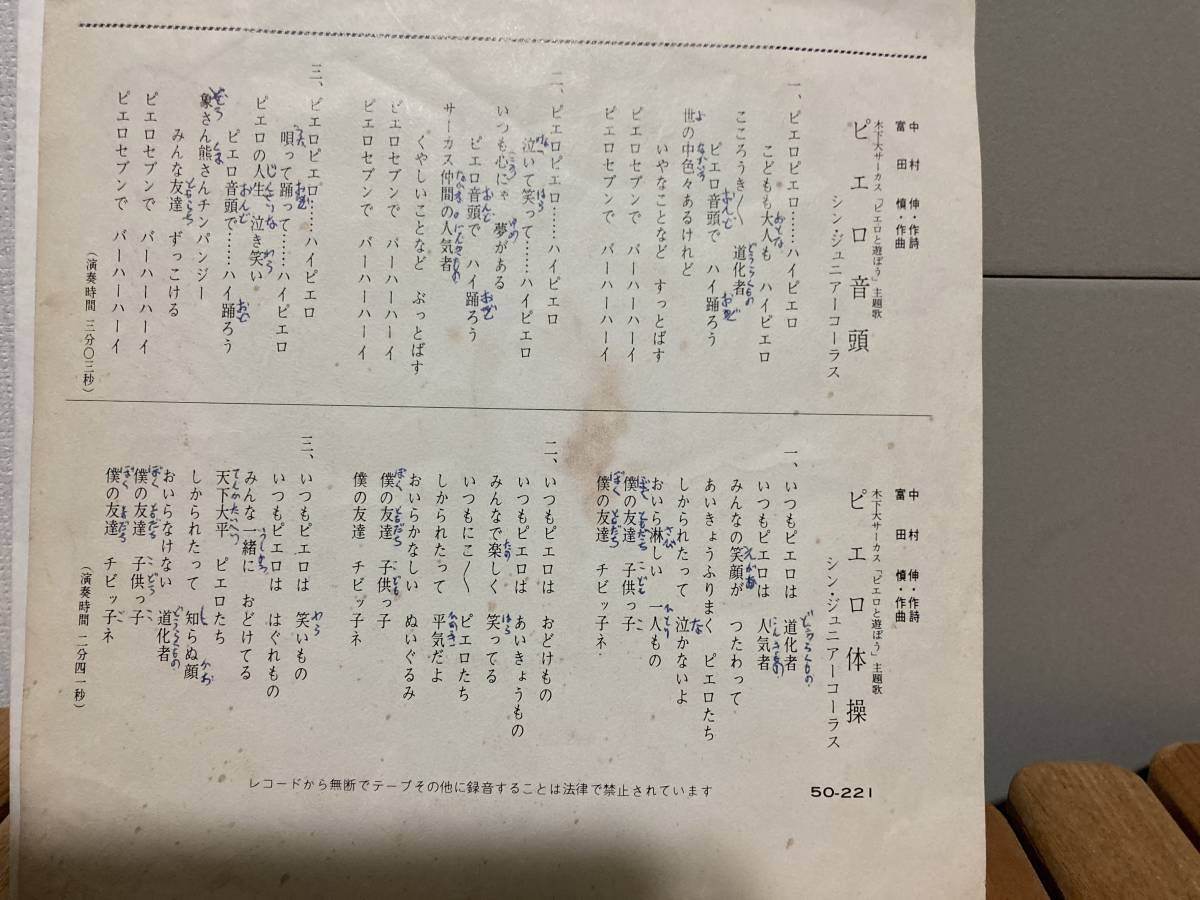 中村 伸・作詩
富田 慎・作曲
木下大サーカス「ピエロと遊ぼう」主題歌
ピエロ音頭
シン・ジュニアーコーラス
一、ピエロピエロ……ハイピエロ
こどもも大人も ハイピエロ
おとな
こころうき〱 道化者
どうらくもの
ピエロ音頭で ハイ踊ろう
おんど おど
世の中色々あるけれど
よ なかいろ
いやなことなど すっとばす
ピエロセブンで バーハーハーイ
ピエロセブンで バーハーハーイ
二、ピエロピエロ……ハイピエロ
泣いて笑って……ハイピエロ
ない わら
いつも心にゃ 夢がある
こころ ゆめ
ピエロ音頭で ハイ踊ろう
おんど おど
サーカス仲間の人気者
なかま にんきもの
くやしいことなど ぶっとばす
ピエロセブンで バーハーハーイ
ピエロセブンで バーハーハーイ
三、ピエロピエロ……ハイピエロ
唄って踊って……ハイピエロ
うた おど
ピエロの人生 泣き笑い
じんせい な わら
ピエロ音頭で……ハイ踊ろう
おんど おど
象さん熊さんチンパンジー
ぞう くま
みんな友達 ずっこける
ともだち
ピエロセブンで バーハーハーイ
ピエロセブンで バーハーハーイ
（演奏時間 三分〇三秒）
中村 伸・作詩
富田 慎・作曲
木下大サーカス「ピエロと遊ぼう」主題歌
ピエロ体操
シン・ジュニアーコーラス
一、いつもピエロは 道化者
どうらくもの
いつもピエロは 人気者
にんきもの
みんなの笑顔が つたわって
えがお
あいきょうふりまく ピエロたち
しかられたって 泣かないよ
な
おいら淋しい 一人もの
さび ひとり
僕の友達 子供っ子
ぼく ともだち こども こ
僕の友達 チビッ子ネ
ぼく ともだち
二、いつもピエロは おどけもの
いつもピエロは あいきょうもの
みんなで楽しく 笑ってる
たの わら
いつもにこ〱 ピエロたち
しかられたって 平気だよ
へいき
おいらかなしい ぬいぐるみ
僕の友達 子供っ子
ぼく ともだち こども
僕の友達 チビッ子ネ
三、いつもピエロは 笑いもの
わら
いつもピエロは はぐれもの
みんな一緒に おどけてる
いっしょ
天下太平 ピエロたち
てんかたいへい
しかられたって 知らぬ顔
し かお
おいらなけない 道化者
どうらくもの
僕の友達 子供っ子
ぼく ともだち こども こ
僕の友達 チビッ子ネ
ぼく ともだち こ
（演奏時間 二分四一秒）
レコードから無断でテープその他に録音することは法律で禁止されています
50-221